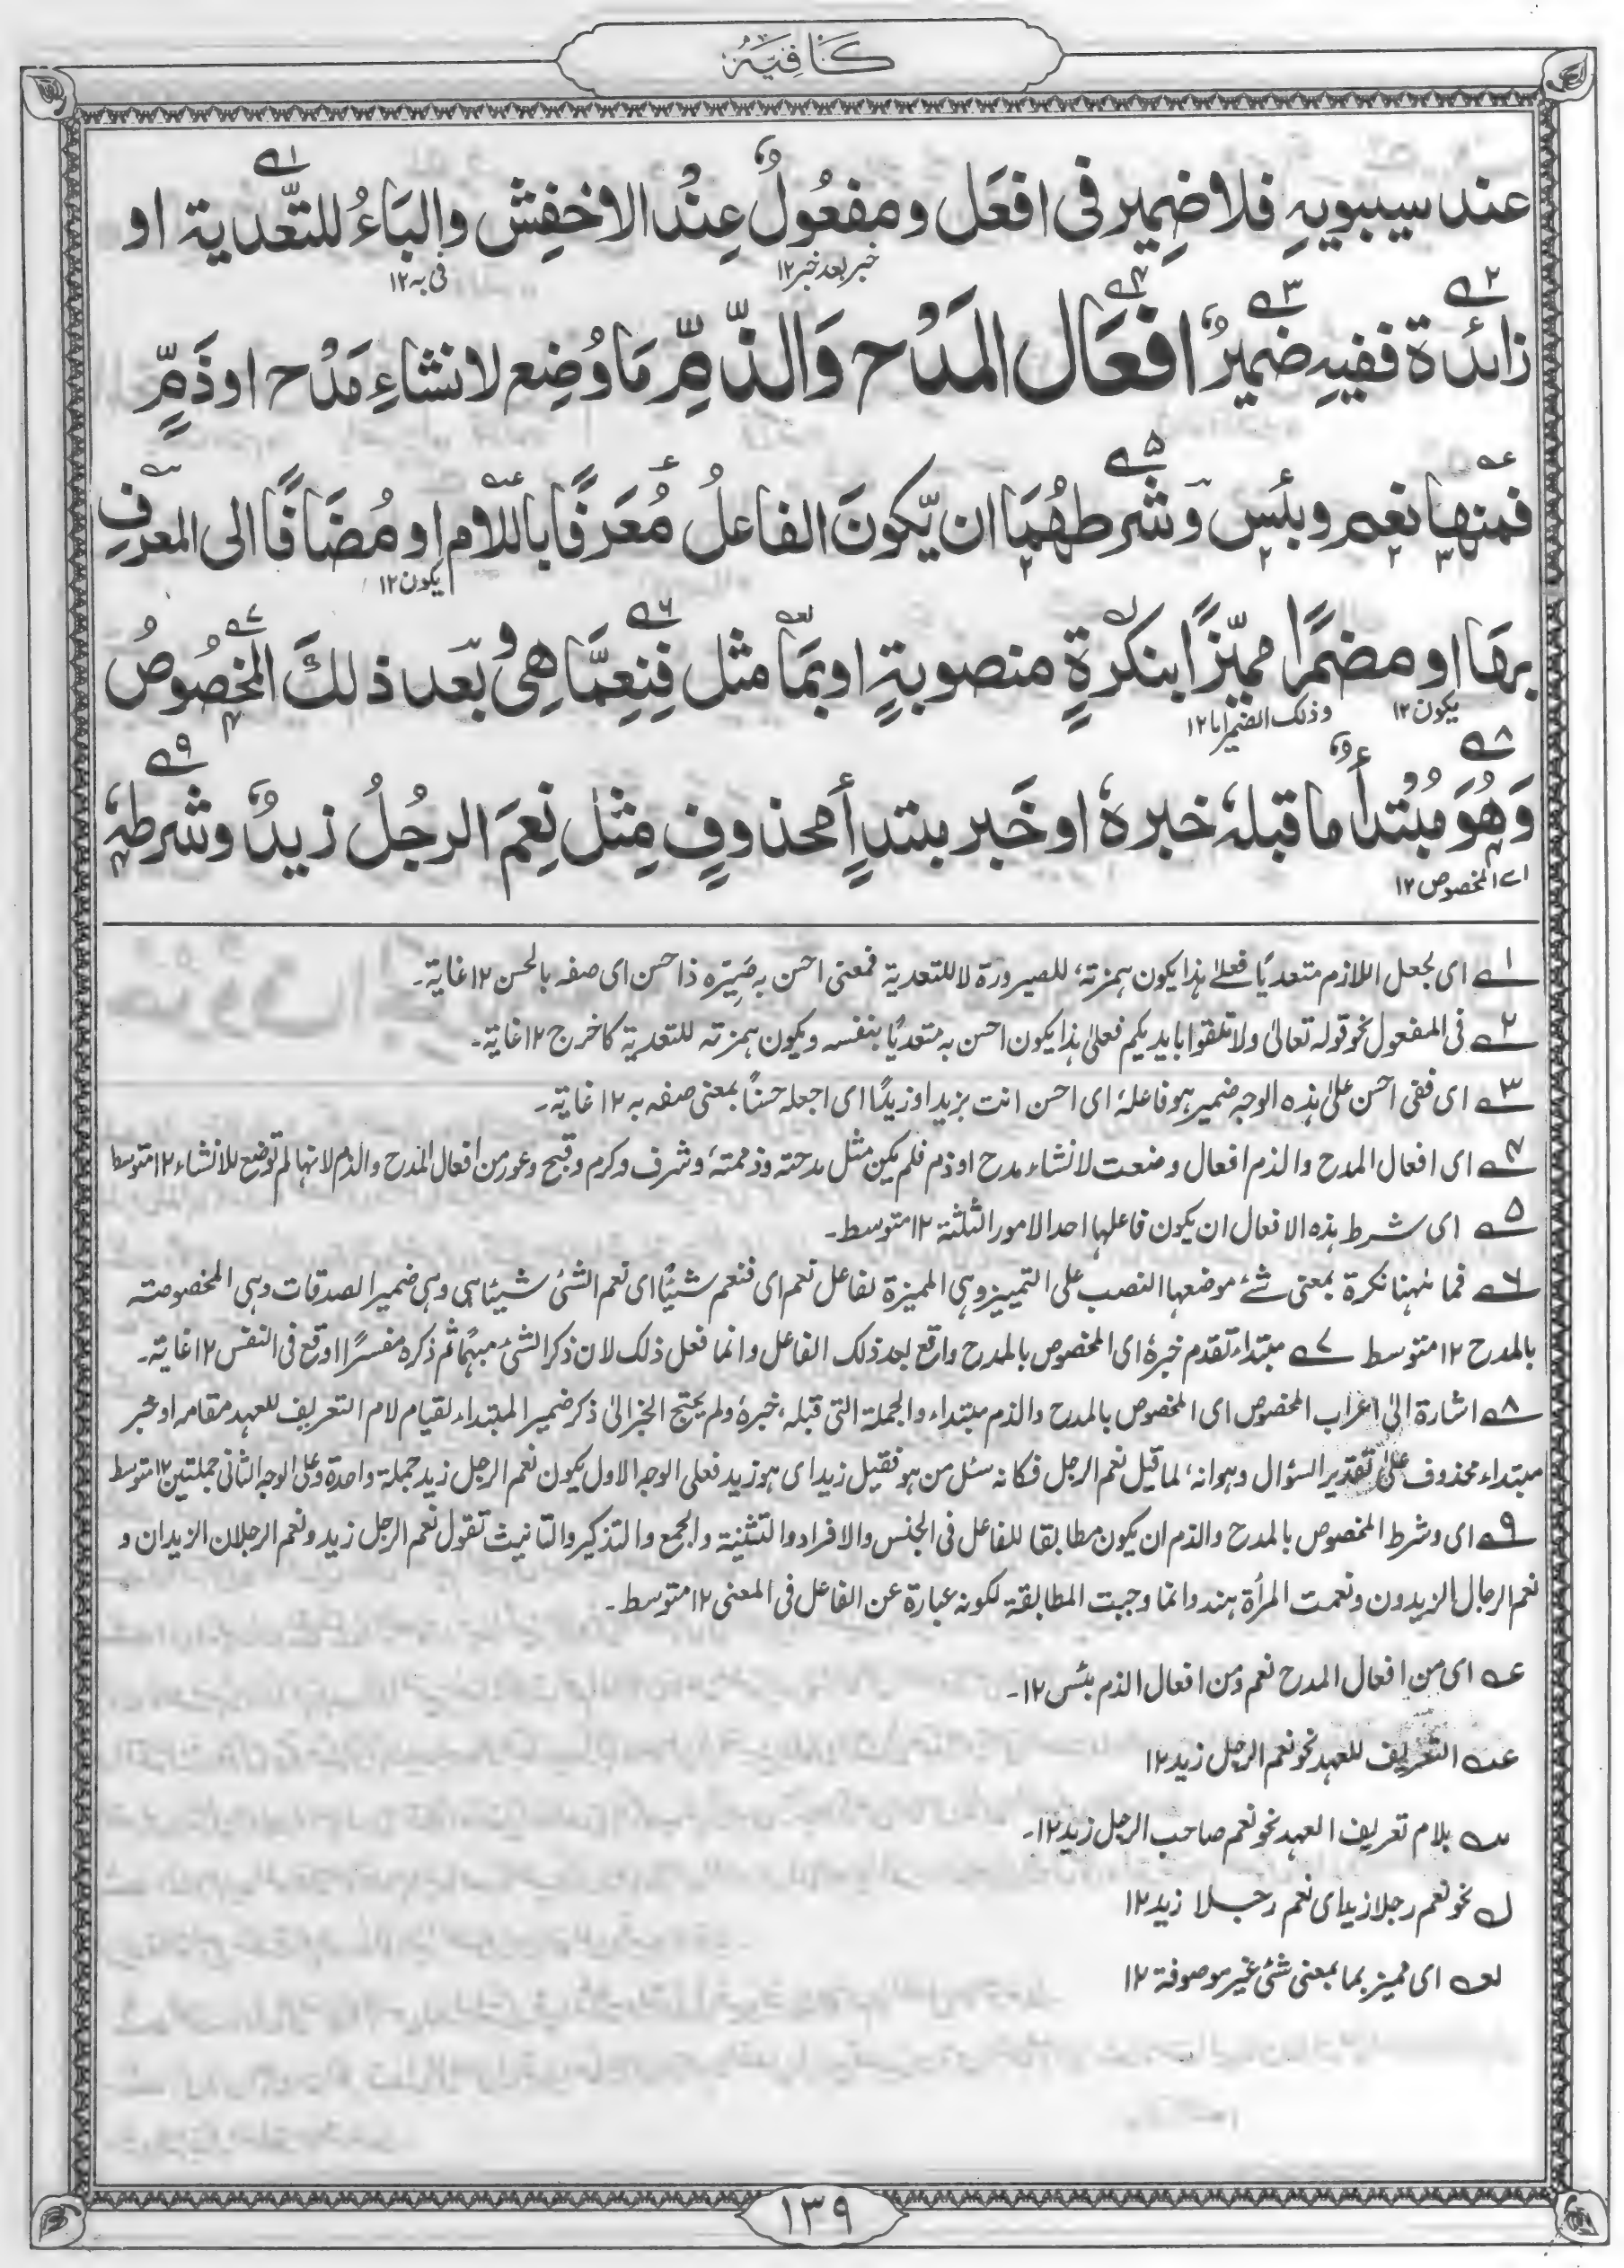 كَافِيَہ
عند سیبویہِ فلا ضِمیر فی افعَل و مفعُولٌ عِنْدَ الاخفِش والبَاءُ للتَّعْدیۃ او
خبر بعد خبر۱۲
فی بہ۱۲
زائدۃ ففیہِ ضمیرٌ افعَال المَدْح وَالذَّمِّ مَا وُضِع لانشاءِ مَدْح او ذَمٍّ
فمنها نعم و بئس وشرطهُمَا ان یّکونَ الفاعلُ مُعَرَّفًا باللّام او مُضَافًا الی المعرّفِ
یکون۱۲
بهَا او مضمرًا ممیّزًا بنکرۃٍ منصوبۃٍ او بمَا مثل فَنِعِمَّا هِیَ وبَعْد ذٰلكَ المخصُوصُ
یکون۱۲
وذلک الضمیر اما۱۲
وَهُوَ مُبْتدأٌ ما قبلہٗ خبرہٗ او خَبر مبتدإٍ محذوفٍ مِثل نِعمَ الرجُلُ زیدٌ وشرطہٗ
اے المخصوص۱۲
۱ے ای لجعل اللازم متعدیًا فعلٰے ہذا یکون ہمزتہٗ للصیرورۃ لا للتعدیۃ فمعنی احسن بہ صَیِّرہ ذا حسن ای صفہ بالحسن ۱۲ غایۃ۔
۲ے فی المفعول نحو قولہ تعالیٰ ولا تلقوا بایدیکم فعلیٰ ہذا یکون احسن بہ متعدیًا بنفسہ ویکون ہمزتہ للتعدیۃ کما خرج ۱۲ غایۃ۔
۳ے ای ففی احسن علیٰ ہذہ الوجہ ضمیر ہو فاعلہٗ ای احسن انت بزید او زیدًا ای اجعلہ حسنًا بمعنی صفہ بہ ۱۲ غایۃ۔
۴ے ای افعال المدح والذم افعال وضعت لانشاء مدح او ذم فلم یکن مثل مدحتہ وذممتہٗ وشرف وکرم وقبح وعور من افعال المدح والذم لانہا لم توضع للانشاء ۱۲ متوسط
۵ے ای شرط ہذہ الافعال ان یکون فاعلہا احد الامور الثلثۃ ۱۲ متوسط۔
۶ے فما ہٰہنا نکرۃ بمعنی شے موضعہا النصب علی التمییز وہی الممیزۃ لفاعل نعم ای فنعم شیئًا ای نعم الشئ شیئا ہی وہی ضمیر الصدقات وہی المخصوصۃ
بالمدح ۱۲ متوسط ۷ے مبتداء تقدم خبرہٗ ای المخصوص بالمدح واقع بعد ذلک الفاعل وانما فعل ذلک لان ذکر الشئ مبہمًا ثم ذکرہ مفسرًا اوقع فی النفس ۱۲ غایۃ۔
۸ے اشارۃ الیٰ اعراب المخصوص ای المخصوص بالمدح والذم مبتداء والجملۃ التی قبلہٗ خبرہٗ ولم یحتج الخبر الیٰ ذکر ضمیر المبتداء لقیام لام التعریف للعہد مقامہ او خبر
مبتداء محذوف علیٰ تقدیر السؤال وہو انہٗ لما قیل نعم الرجل فکانہ سئل من ہو فقیل زید ای ہو زید فعلی الوجہ الاول یکون نعم الرجل زید جملۃ واحدۃ وعلی الوجہ الثانی جملتین ۱۲ متوسط
۹ے ای وشرط المخصوص بالمدح والذم ان یکون مطابقا للفاعل فی الجنس والافراد والتثنیۃ والجمع والتذکیر والتانیث تقول نعم الرجل زید ونعم الرجلان الزیدان و
نعم الرجال الزیدون ونعمت المرأۃ ہند وانما وجبت المطابقۃ لکونہ عبارۃ عن الفاعل فی المعنی ۱۲ متوسط۔
عہ ای من افعال المدح نعم ومن افعال الذم بئس ۱۲۔
عہ التعریف للعہد نحو نعم الرجل زید ۱۲
سہ بلام تعریف العہد نحو نعم صاحب الرجل زید ۱۲۔
لہ نحو نعم رجلا زید ای نعم رجلا زید ۱۲
لعہ ای ممیز بما بمعنی شئ غیر موصوفۃ ۱۲
۱۳۹